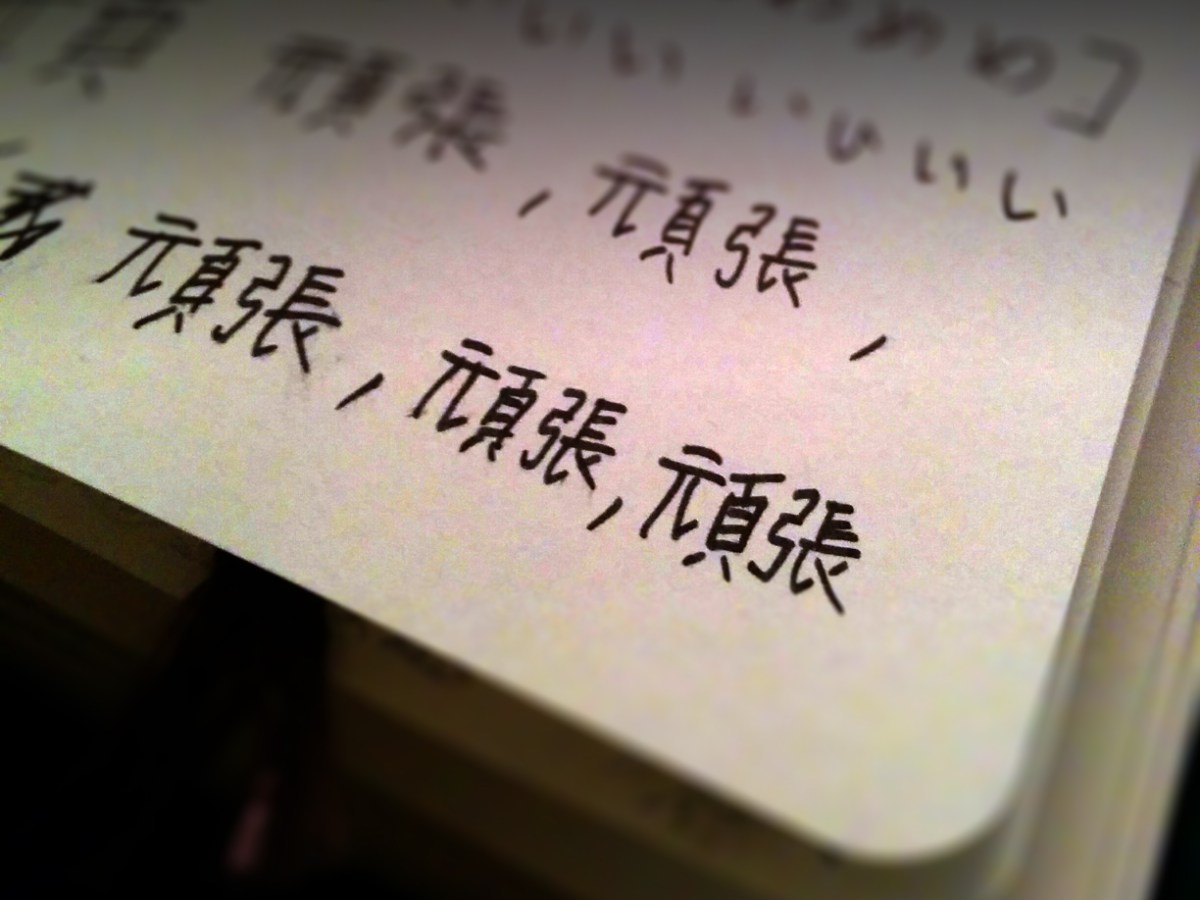 めめ]
いいいいいい
頑張, 頑張,
頑張, 頑張, 頑張